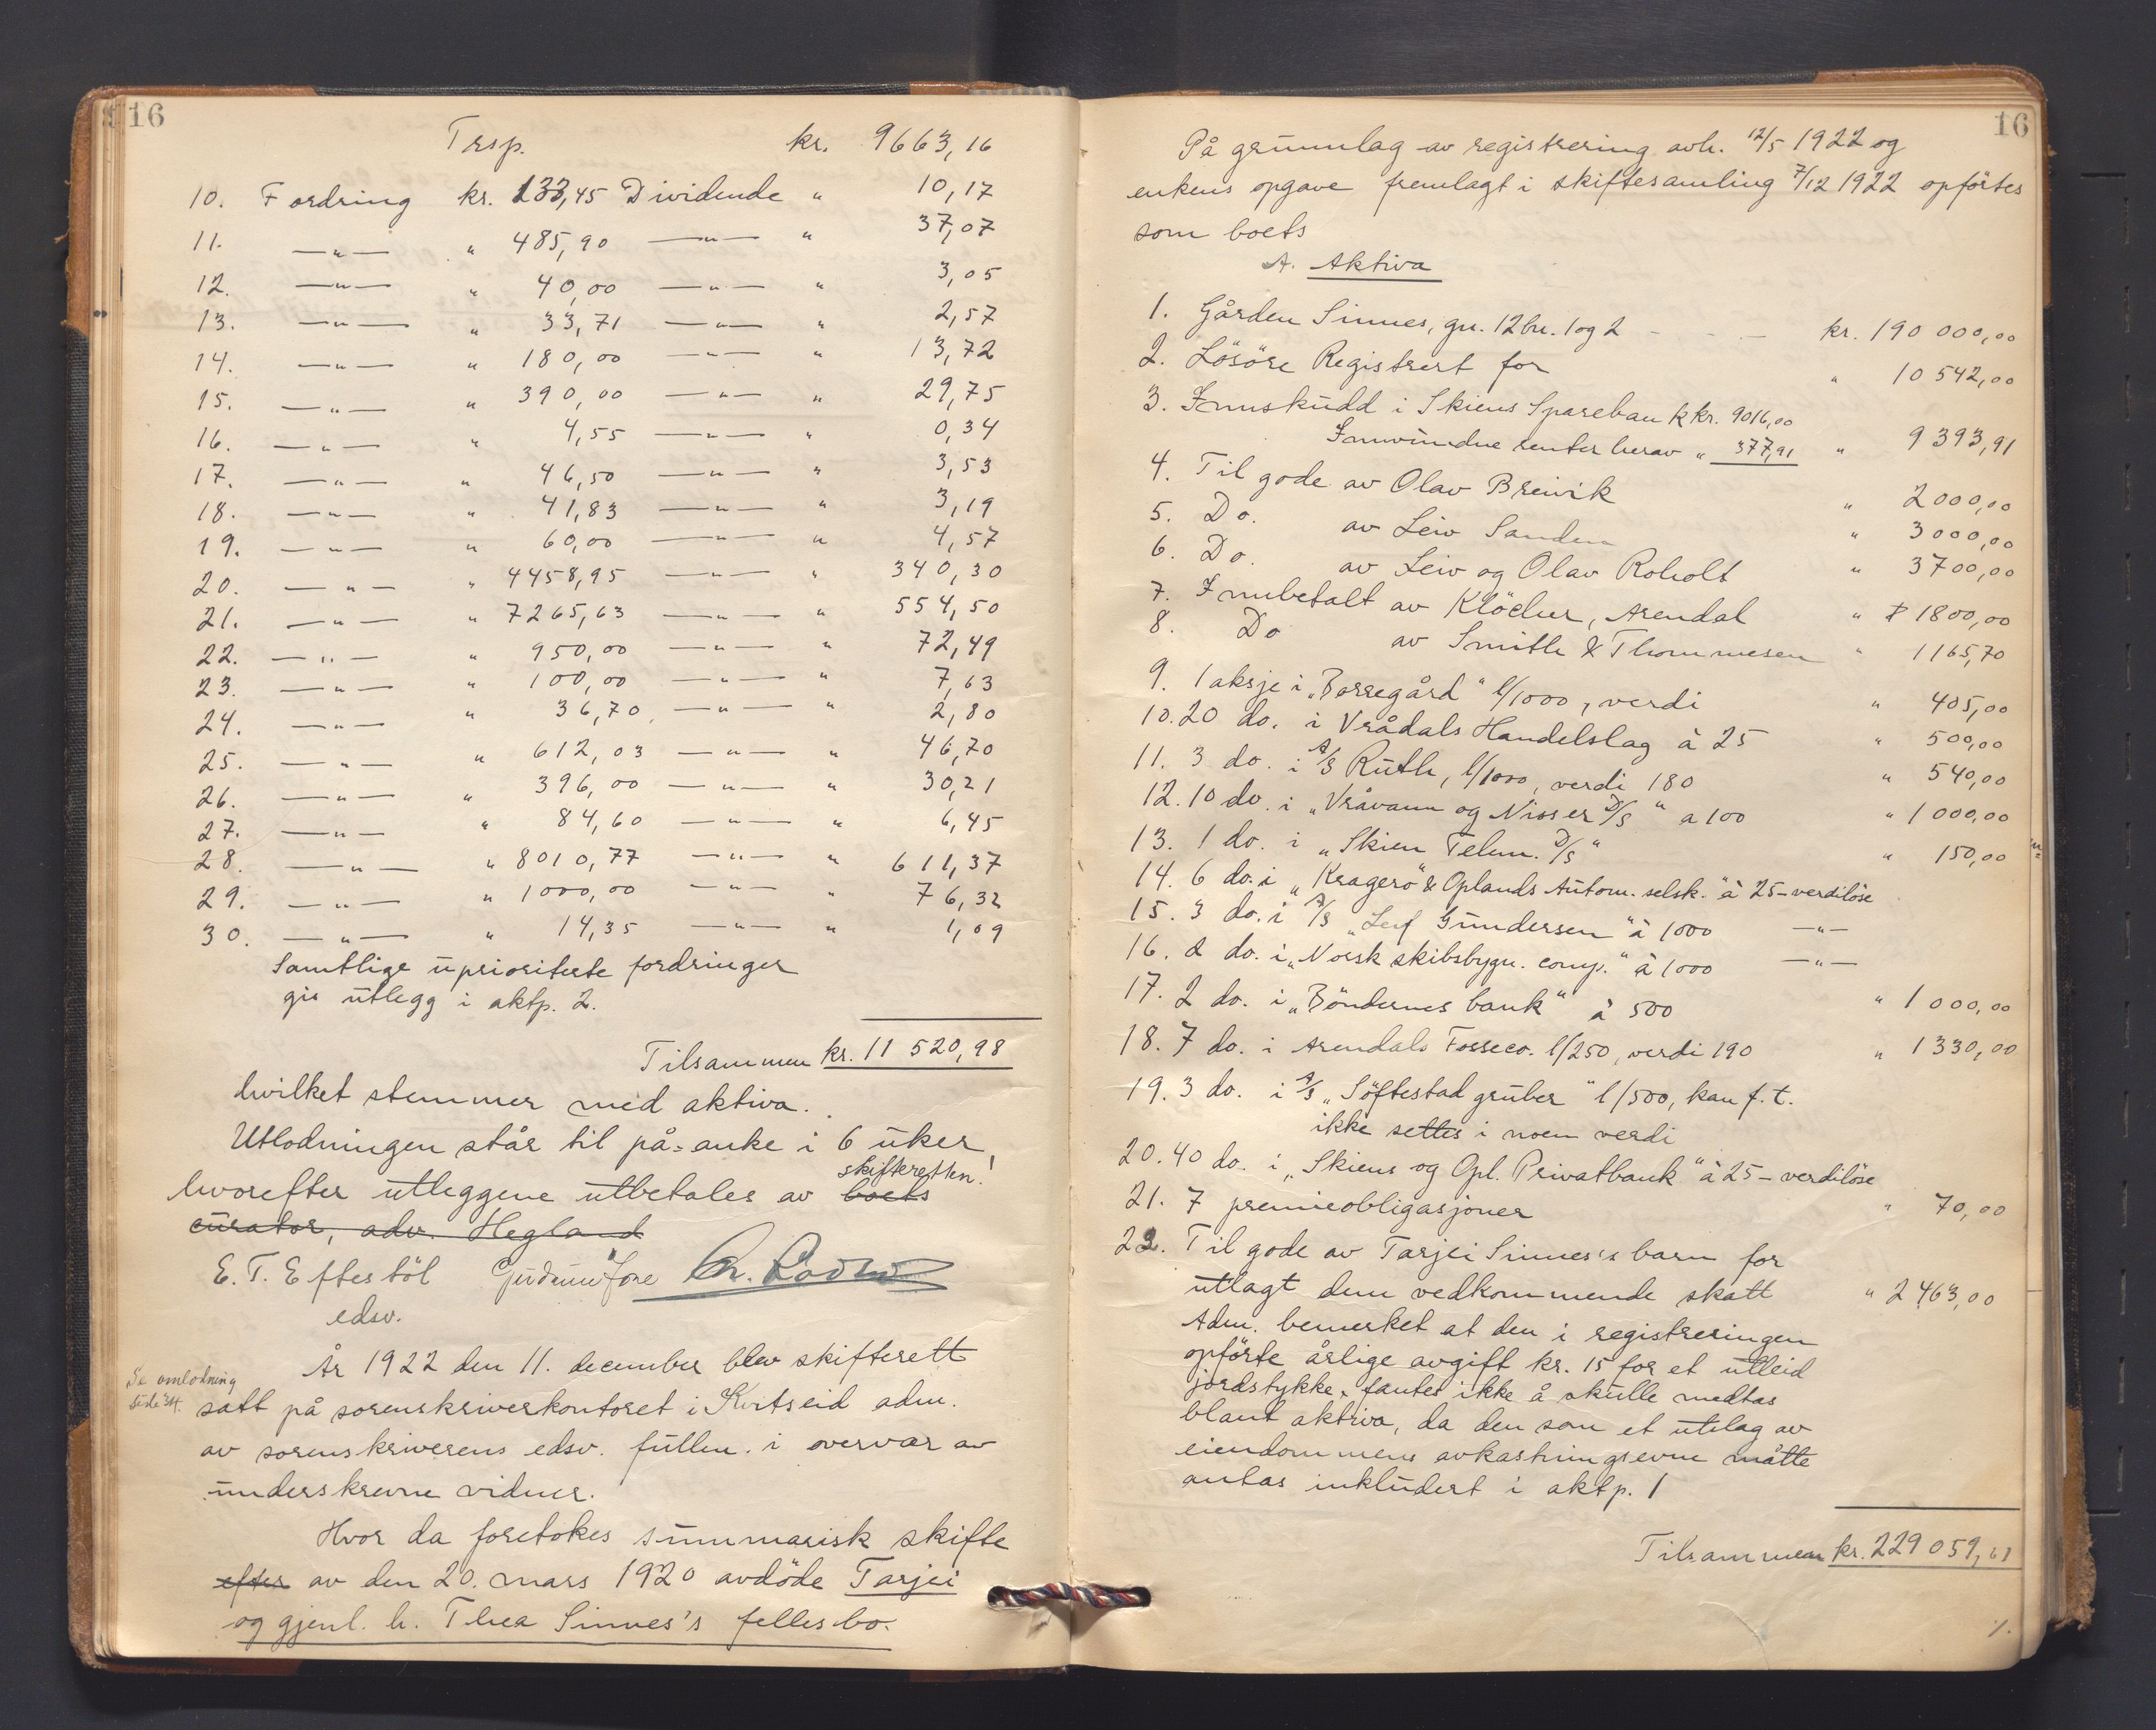 16
Trsp. kr. 9663,16
10. Fordring kr. 133,45 Dividende " 10,17
11. —"— " 485,90 —"— " 37,07
12. —"— " 40,00 —"— " 3,05
13. —"— " 33,71 —"— " 2,57
14. —"— " 180,00 —"— " 13,72
15. —"— " 390,00 —"— " 29,75
16. —"— " 4,55 —"— " 0,34
17. —"— " 46,50 —"— " 3,53
18. —"— " 41,83 —"— " 3,19
19. —"— " 60,00 —"— " 4,57
20. —"— " 4458,95 —"— " 340,30
21. —"— " 7265,63 —"— " 554,50
22. —"— " 950,00 —"— " 72,49
23. —"— " 100,00 —"— " 7,63
24. —"— " 36,70 —"— " 2,80
25. —"— " 612,03 —"— " 46,70
26. —"— " 396,00 —"— " 30,21
27. —"— " 84,60 —"— " 6,45
28. —"— " 8010,77 —"— " 611,37
29. —"— " 1000,00 —"— " 76,32
30. —"— " 14,35 —"— " 1,09
Samtlige uprioriterte fordringer
gis utlegg i aktp. 2.
Tilsammen kr. 11 520,98
hvilket stemmer med aktiva.
Utlodningen står til på-anke i 6 uker,
skifteretten!
hvorefter utleggene utbetales av boets
curator, adv. Hegland
E. T. Eftestöl
edsv.
År 1922 den 11. december blev skifterett
Se omlodning
side 34.
satt på sorenskriverkontoret i Kvitseid adm.
av sorenskriverens edsv. fullm. i overvær av
underskrevne vidner.
Hvor da foretokes summarisk skifte
efter av den 20. mars 1920 avdöde Tarjei
og gjenl. h. Thea Sinnes's fellesbo.
16
På grunnlag av registrering avh. 12/5 1922 og
enkens opgave fremlagt i skiftesamling 7/12 1922 opförtes
som boets
A. Aktiva
1. Gården Sinnes, gn. 12 bn. 1 og 2 - - - kr. 190 000,00
2. Lösöre Registrert for " 10 542,00
3. Innskudd i Skiens Sparebank kr. 9016,00
Innvundne renter herav " 377,91 " 9 393,91
4. Til gode av Olav Breivik " 2 000,00
5. Do. av Leiv Sanden " 3 000,00
6. Do. av Leiv og Olav Roholt " 3 700,00
7. Innbetalt av Klöcker, Arendal " 1 800,00
8. Do av Smith & Thommesen " 1 165,70
9. 1 aksje i „Borregård" l/1000, verdi " 405,00
10. 20 do. i Vrådals Handelslag à 25 " 500,00
11. 3 do. i A/S Ruth, l/1000, verdi 180 " 540,00
12. 10 do. i „Vråvann og Nisser D/S" a 100 " 1 000,00
13. 1 do. i „Skien Telem. D/S" " 150,00
14. 6 do. i „Kragerö & Oplands Autom. selsk." à 25 - verdilöse
15. 3 do. i A/S „Leif Gundersen" à 1000 —"—
16. 2 do. i „Norsk skibsbygn. comp." à 1000 —"—
17. 2 do. i „Böndernes bank" à 500 " 1 000,00
18. 7 do. i Arendals Fosseco. l/250, verdi 190 " 1 330,00
19. 3 do. i A/S „Söftestad gruber" l/500, kan f. t.
ikke settes i noen verdi
20. 40 do. i „Skiens og Opl. Privatbank" à 25 - verdilöse
21. 7 premieobligasjoner " 70,00
22. Til gode av Tarjei Sinnes's barn for
utlagt dem vedkommende skatt " 2 463,00
Adm. bemerket at den i registreringen
opförte årlige avgift kr. 15 for et utleid
jordstykke, fantes ikke å skulle medtas
blant aktiva, da den som et utslag av
eiendommens avkastningsevne måtte
antas inkludert i aktp. 1
Tilsammen kr. 229 059,61